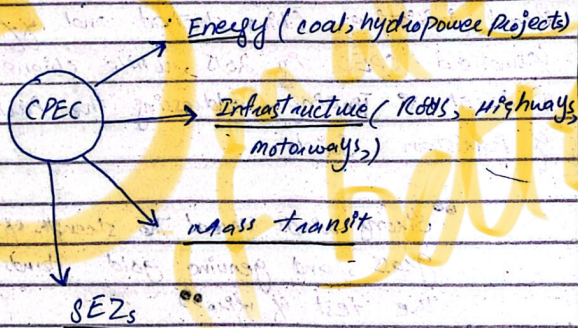 Energy ( coal, hydropower projects)
CPEC
Infrastructure( Roads, Highways,
motorways,)
Mass transit
SEZs